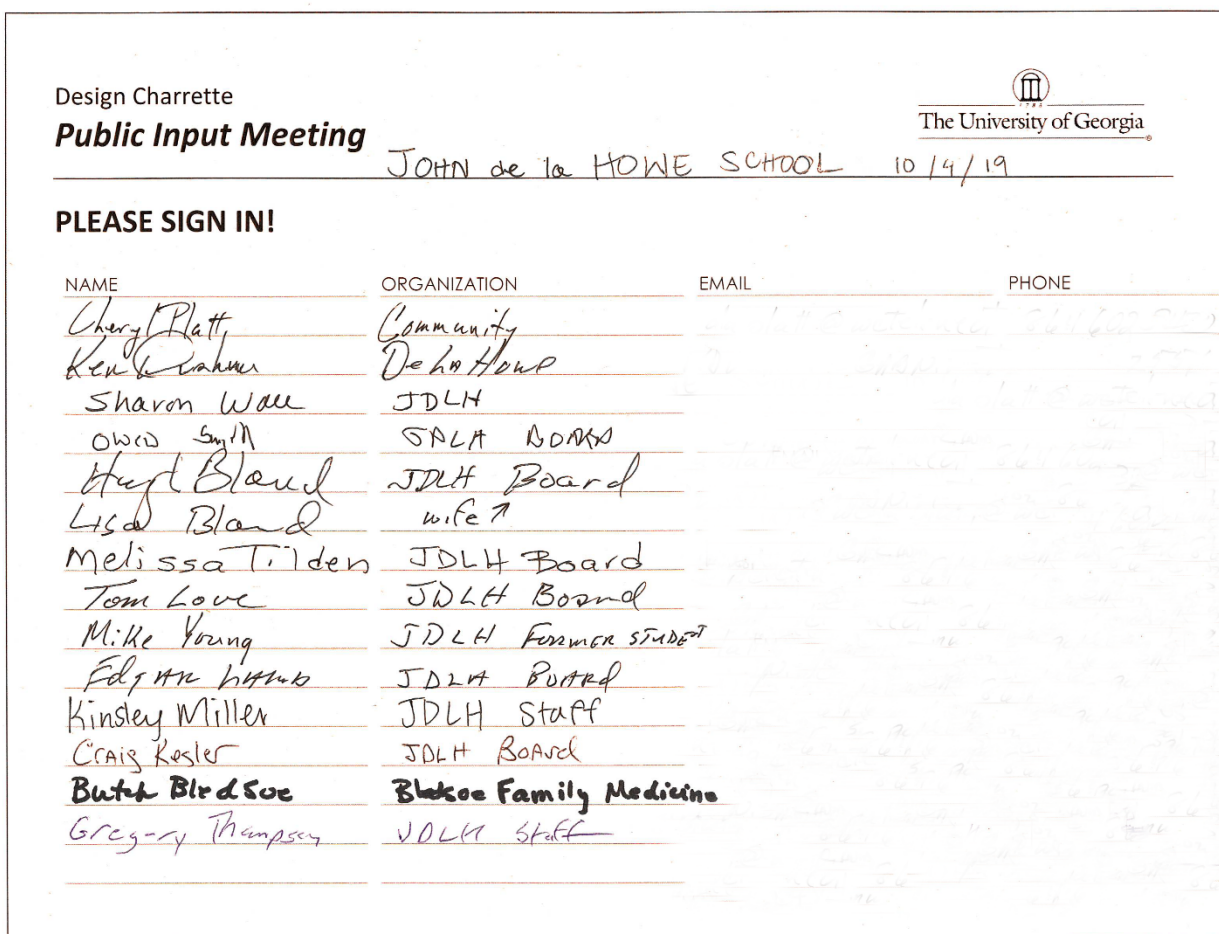 Design Charrette
Public Input Meeting
The University of Georgia
JOHN de la HOWE SCHOOL 10/4/19
PLEASE SIGN IN!
NAME ORGANIZATION EMAIL PHONE
Cheryl Platt Community
Ken De La Howe
Sharon Wall JDLH
Smith BOARD
Hugh Bland JDLH Board
Lisa Bland wife ↗
Melissa Tilden JDLH Board
Tom Love JDLH Board
Mike Young JDLH FORMER STUDENT
Edgar LAMB JDLH BOARd
Kinsley Miller JDLH Staff
CrAig Kesler JDLH BOArd
Butch Bledsoe Family Medicine
Gregory Thompson JDLH Staff